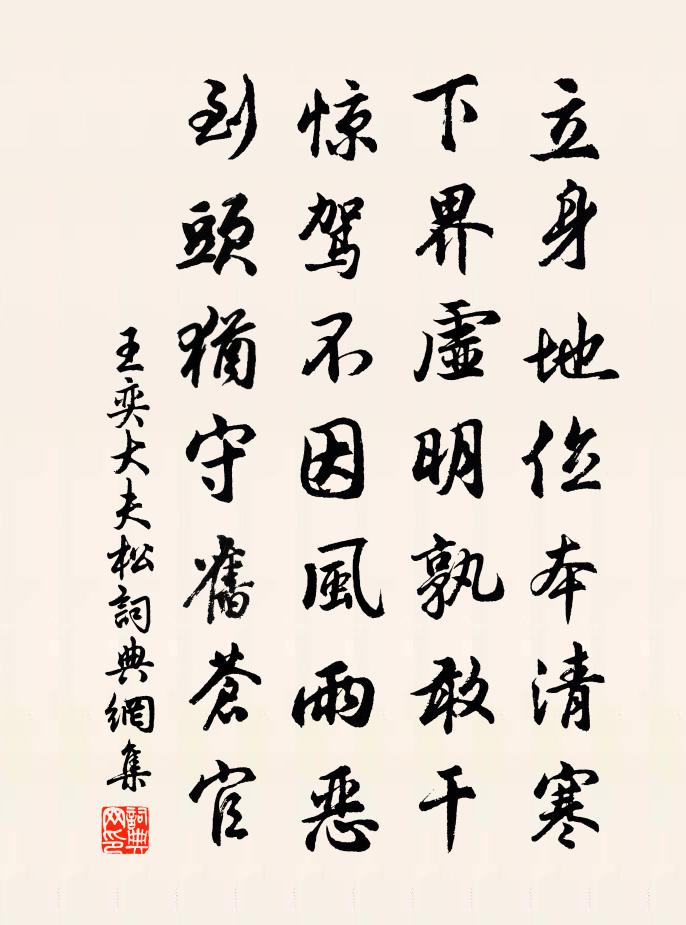 立身地位本清寒
下界虛明孰敢干
惊駕不因風雨惡
到頭猶守舊蒼官
王奕大夫松詞典網集
詞典网印